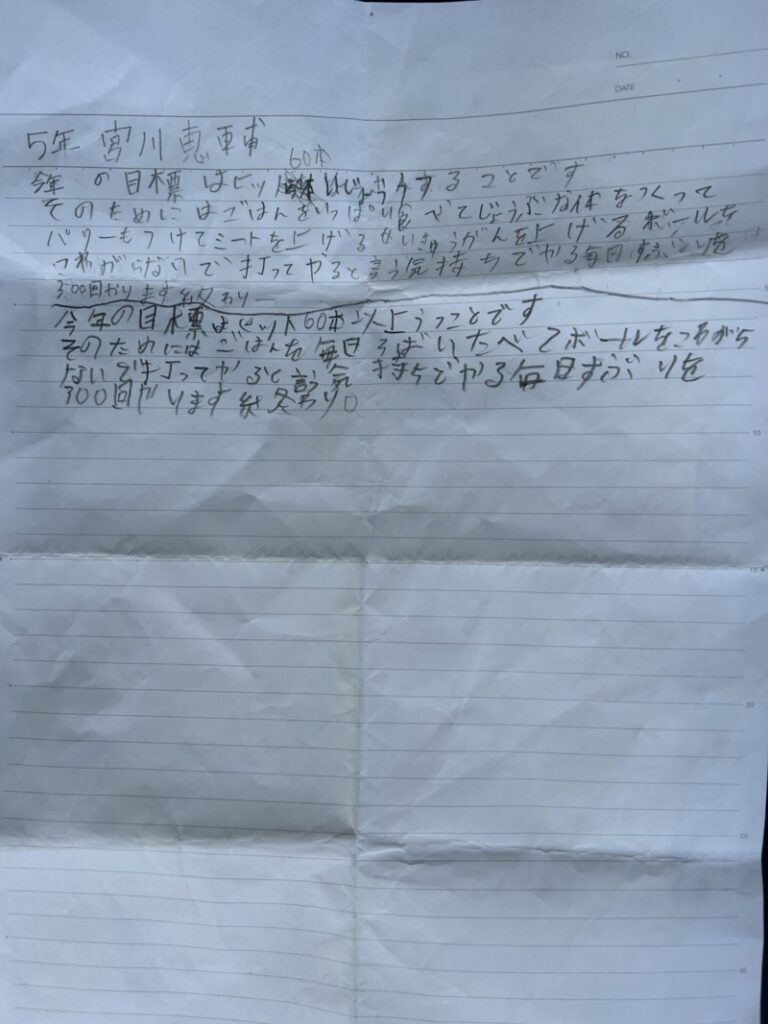 NO.
DATE
5年 宮川恵輔
60本
今年の目標はヒットいじょううすることです
そのためにはごはんをいっぱい食べてじょうぶな体をつくって
パワーもつけてミートを上げるせいきゅうがんを上げるボールを
こわがらないで打ってやると言う気持ちでやる毎日すぶりを
300回やります 終わり
5
今年の目標はヒット60本以上うつことです
そのためにはごはんを毎日そばいたべてボールをこわがら
ないで打ってやると言う気持ちでやる毎日すぶりを
300回やります 終わり。
10
20
25
30